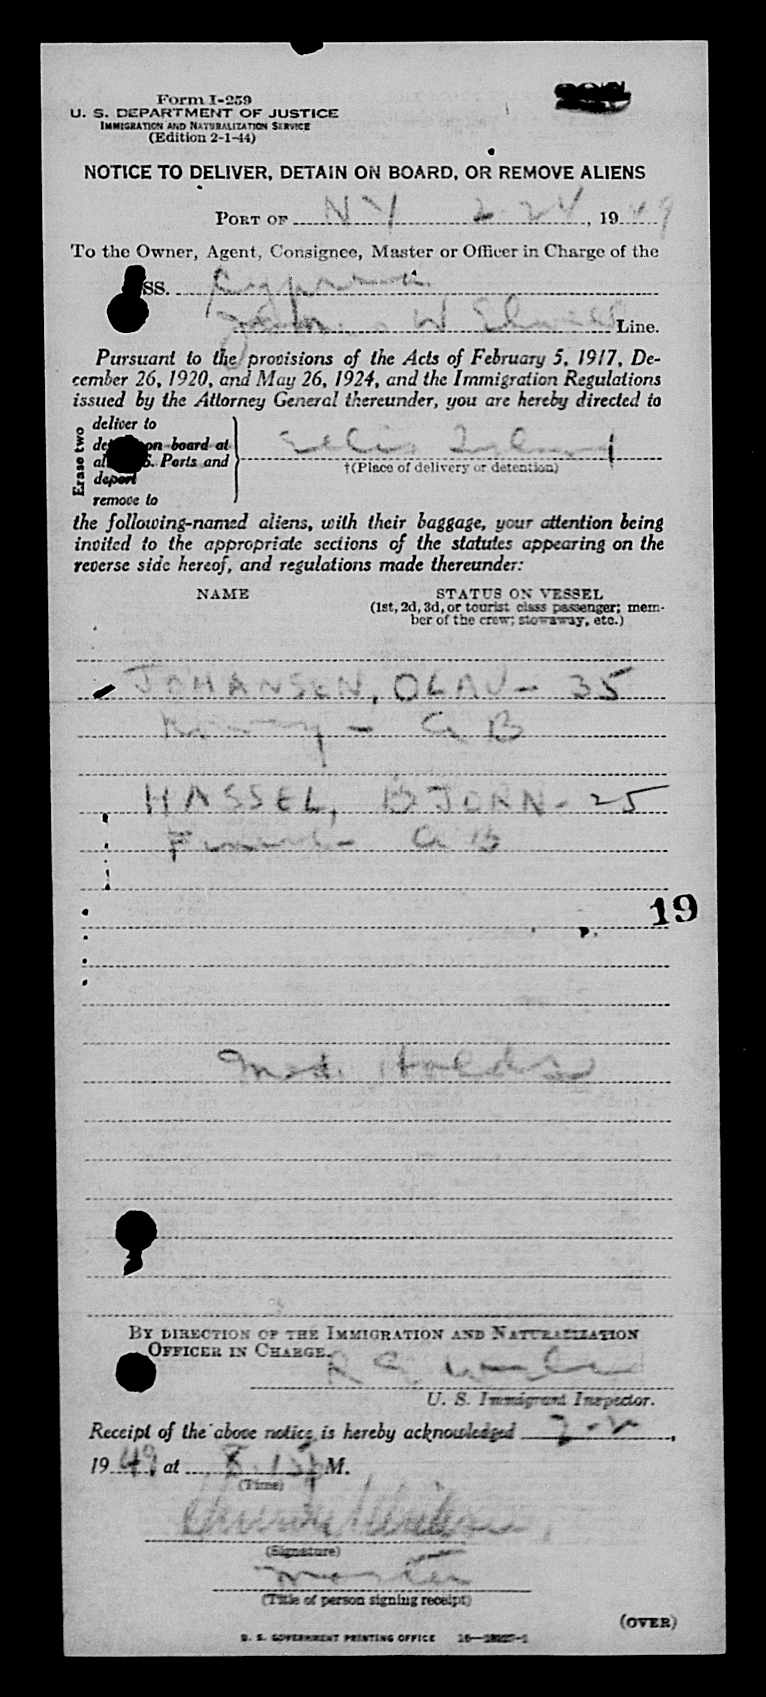 Form I-259
U. S. DEPARTMENT OF JUSTICE
IMMIGRATION AND NATURALIZATION SERVICE
(Edition 2-1-44)
NOTICE TO DELIVER, DETAIN ON BOARD, OR REMOVE ALIENS
PORT OF NY 2-24, 1949
To the Owner, Agent, Consignee, Master or Officer in Charge of the
SS.
W Line.
Pursuant to the provisions of the Acts of February 5, 1917, De-
cember 26, 1920, and May 26, 1924, and the Immigration Regulations
issued by the Attorney General thereunder, you are hereby directed to
Erase two
deliver to
on board at
Ports and
deport
remove to
Ellis Island
†(Place of delivery or detention)
the following-named aliens, with their baggage, your attention being
invited to the appropriate sections of the statutes appearing on the
reverse side hereof, and regulations made thereunder:
NAME STATUS ON VESSEL
(1st, 2d, 3d, or tourist class passenger; mem-
ber of the crew; stowaway, etc.)
JOHANSEN, OLAV - 35
Norway - A B
HASSEL, BJORN - 25
- A B
19
Med. Holds
BY DIRECTION OF THE IMMIGRATION AND NATURALIZATION
OFFICER IN CHARGE.
U. S. Immigrant Inspector.
Receipt of the above notice is hereby acknowledged
1949 at 8:15 P M.
(Time)
(Signature)
Master
(Title of person signing receipt)
(OVER)
U. S. GOVERNMENT PRINTING OFFICE